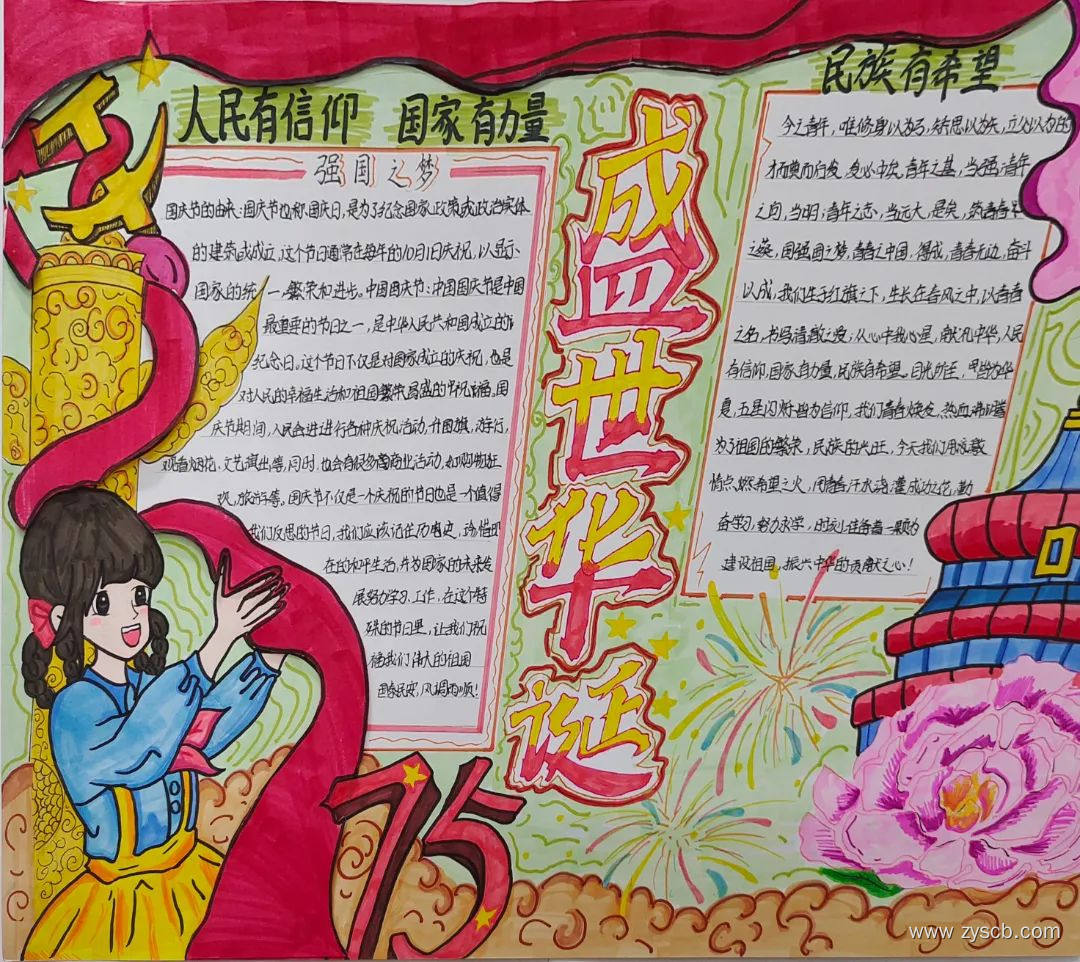 人民有信仰 国家有力量
民族有希望
强国之梦
国庆节的由来:国庆节也称国庆日,是为了纪念国家政策或政治实体
的建筑或成立,这个节日通常在每年的10月1日庆祝,以显示
国家的统一,繁荣和进步。中国国庆节:中国国庆节是中国
最重要的节日之一,是中华人民共和国成立的
纪念日,这个节日不仅是对国家成立的庆祝,也是
对人民的幸福生活和祖国繁荣昌盛的祝福,国
庆节期间,人民会进行各种庆祝活动,升国旗,游行,
观看烟花、文艺演出等,同时,也会有很多商业活动,如购物
旅游等。国庆节不仅是一个庆祝的节日也是一个值得
我们反思的节日,我们应该记住历史,珍惜现
在的和平生活,并为国家的未来发
展努力学习、工作,在这个特
殊的节日里,让我们祝
福我们伟大的祖国
国泰民安,风调雨顺!
盛世华诞
今之青年,唯修身以为弓,矫思以为矢,立义以为的
青年之基,当强;青年
之间,当明;青年之志,当远大,是矣,
之英,国强国之梦,青春之中国,得成,青春无边,奋斗
以成,我们生于红旗之下,生长在春风之中,以青春
之名,书写清澈之爱;从心中我心里,献礼中华,人民
有信仰,国家有力量,民族有希望。目光所至,
夏,五星闪耀皆为信仰,我们青春焕发,热血
为了祖国的繁荣,民族的兴旺,今天我们用
情点燃希望之火,用青春汗水浇灌成功之花,勤
奋学习,努力求学,时刻准备着一颗为
建设祖国,振兴中华的贡献之心!
75
www.zyscb.com